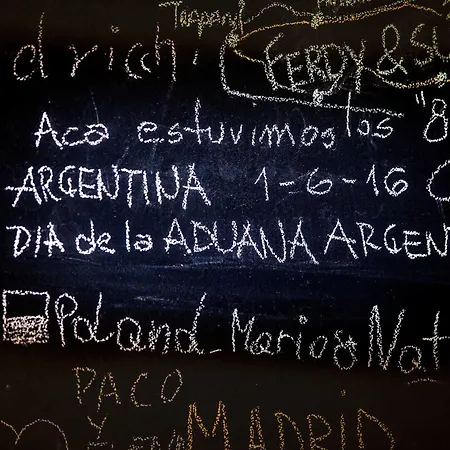 drich
FERDY &
Aca estuvimos los "8
ARGENTINA 1-6-16
DIA de la ADUANA ARGEN
Poland_Marios Nat
PACO
Y
MADRID